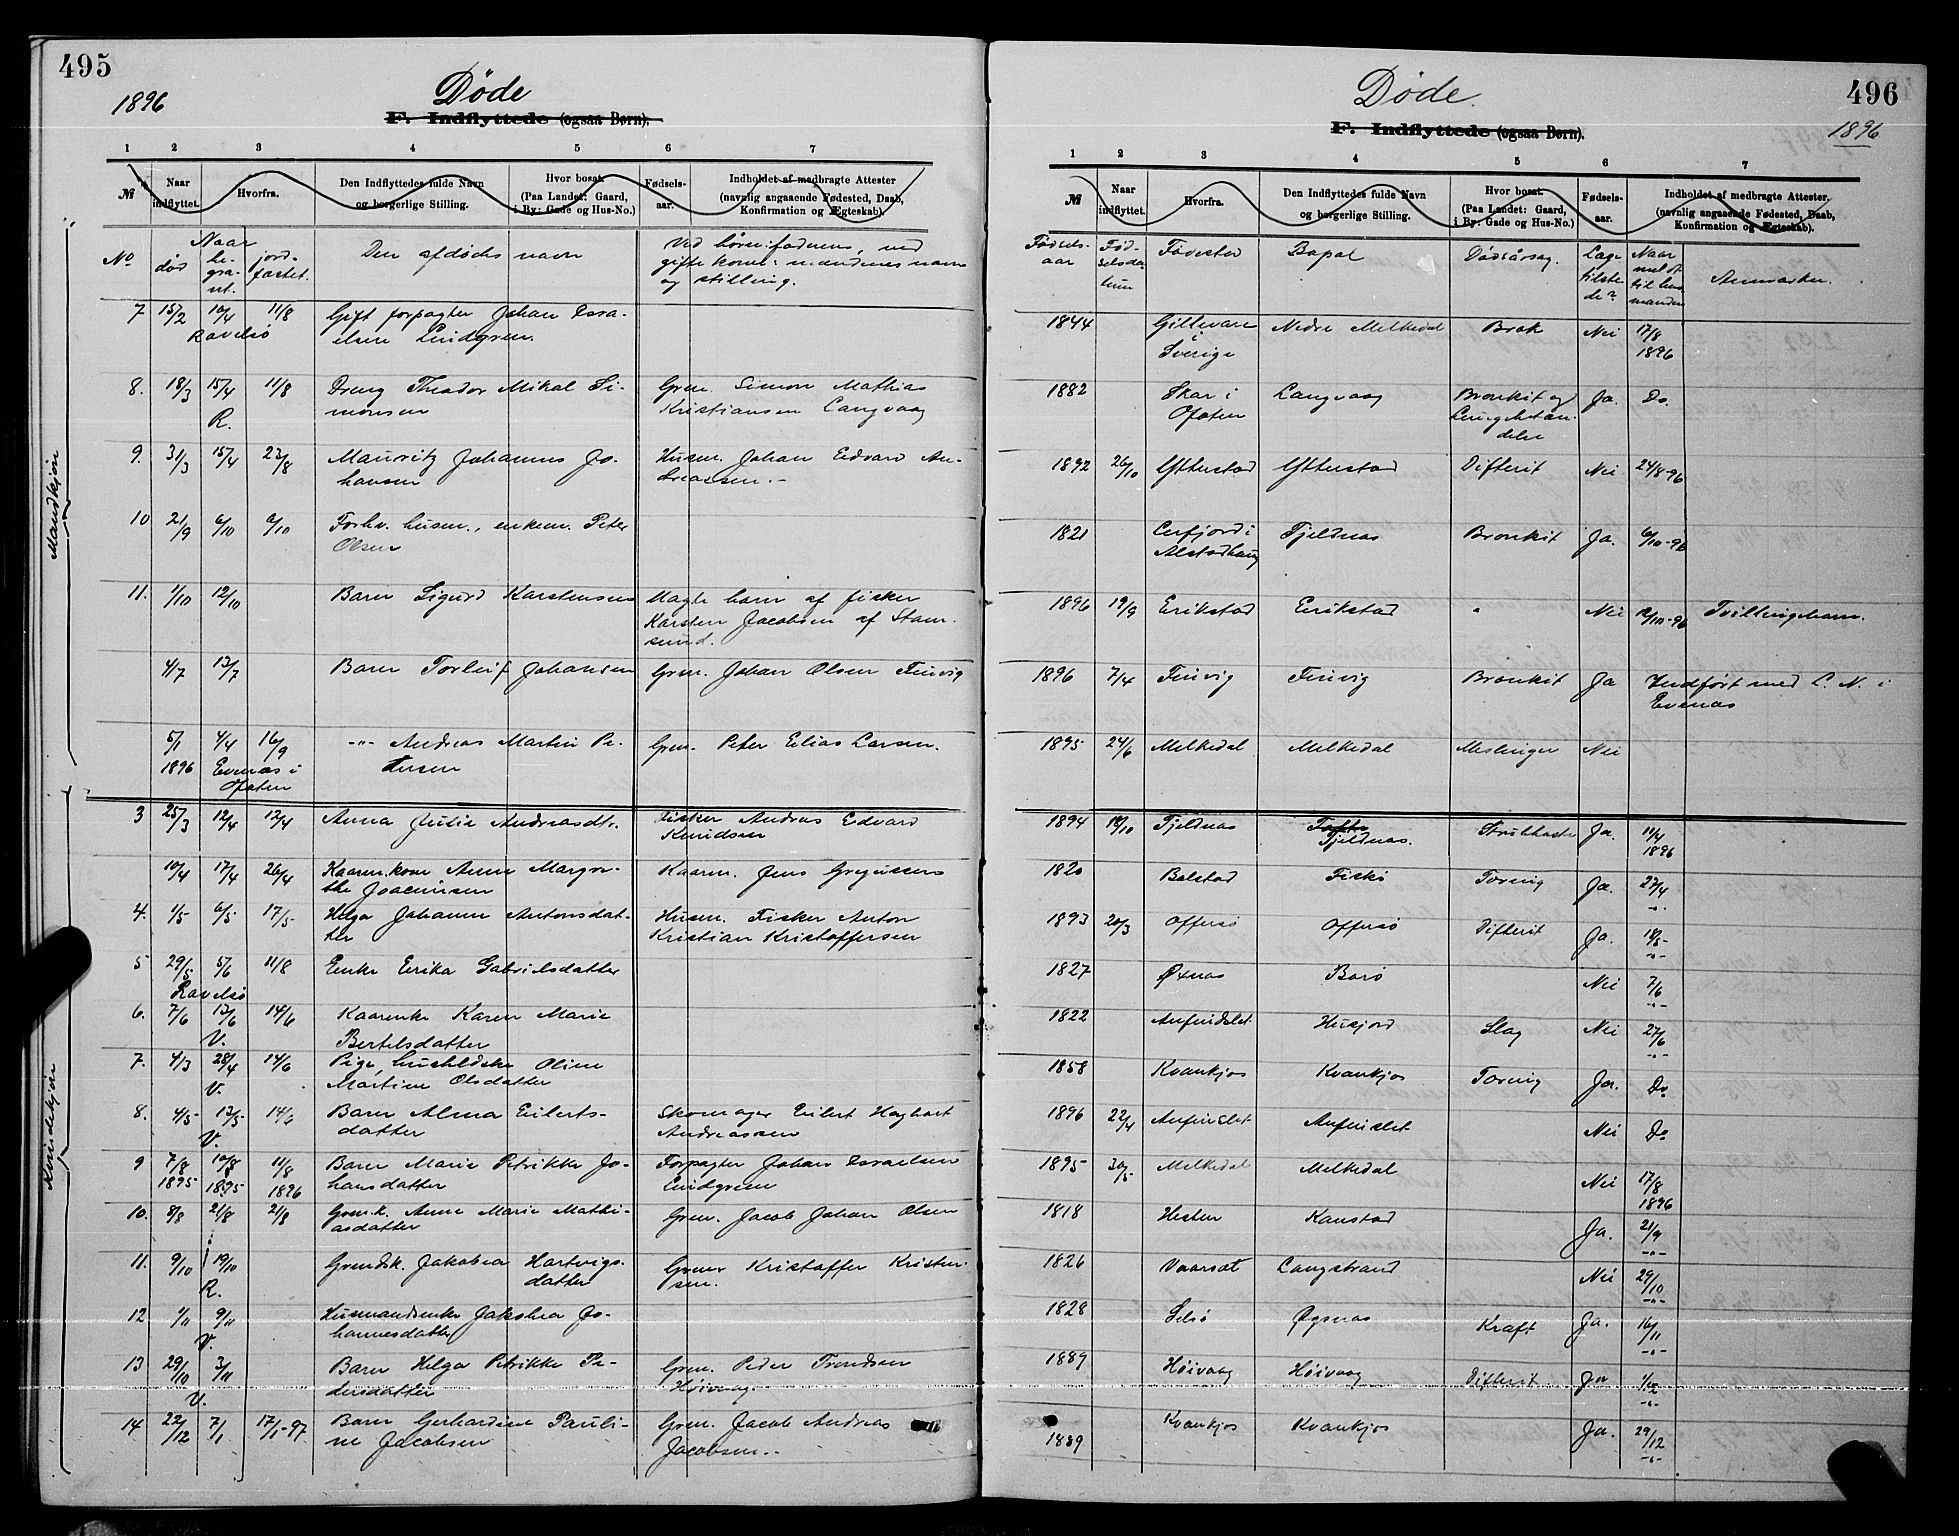 495
1896
Døde
F. Indflyttede (ogsaa Børn).
1 2 3 4 5 6 7
№ Naar indflyttet. Hvorfra. Den Indflyttedes fulde Navn og borgerlige Stilling. Hvor bosat. (Paa Landet: Gaard, i By: Gade og Hus-No.) Fødsels-aar. Indholdet af medbragte Attester (navnlig angaaende Fødested, Daab, Konfirmation og Ægteskab).
No død Naar be-gra-vet. jord-fæstet. Den afdødes navn Ved børn: faderens, ved gifte koner: mandens navn og stilling.
Mandkjøn
7 15/2 10/4 11/8 Gift forpagter Johan Isra-
Ravelsø elsen Lindgren.
8. 18/3 15/4 11/8 Dreng Theodor Mikal Si- Grm. Simon Mathias
R. monsen Kristiansen Langvaag
9. 31/3 15/4 23/8 Mauritz Johannes Jo- Husm. Johan Edvard An-
hansen dreassen.
10 21/9 6/10 6/10 Forhv. husm., enkem. Peter
Olsen
11. 1/10 12/10 Barn Sigurd Karstensen Uægte barn af fisker
Karsten Jacobsen af Stam-
sund.
4/7 13/7 Barn Torleif Johansen Grm. Johan Olsen Finvig
5/1 4/4 16/9 -"- Andreas Martin Pe- Grm. Peter Elias Larsen.
1896 Evenæs i tersen
Ofoten
Kvindekjøn
3 25/3 12/4 12/4 Anna Julie Andreasdtr. Fisker Andreas Edvard
Knudsen
10/4 17/4 26/4 Kaarm.kone Anne Margre- Kaarm. Jens Gregussen
the Joacimsen
4. 1/5 6/5 17/5 Helga Johanne Antonsdat- Husm. Fisker Anton
ter Kristian Kristoffersen
5 29/5 5/6 11/8 Enke Erika Gabrielsdatter
Ravelsø
6. 7/6 13/6 14/6 Kaarenke Karen Marie
V. Bertelsdatter
7. 4/3 28/4 14/6 Pige, Oline
V. Martine Olsdatter
8. 4/5 13/5 14/6 Barn Alma Eilerts- Skomager Eilert Hagbart
V. datter Andreassen
9 7/8 10/8 11/8 Barn Marie Petrikke Jo- Forpagter Johan Israelsen
1895 1895 1896 hansdatter Lindgren
10. 8/8 21/8 21/8 Grm.k. Anne Marie Mathi- Grm. Jacob Johan Olsen
asdatter
11. 9/10 19/10 Grmdsk. Jakobea Hartvigs- Grmr Kristoffer Kristen-
R. datter sen.
12 1/11 9/11 Husmandsenke Jakobea Jo-
V. hannesdatter
13 29/10 3/11 Barn Helga Petrikke Pe- Grm. Peder Trondsen
V. dersdatter Høivaag.
14 22/12 7/1 17/1-97 Barn Gerhardine Pauli- Grm. Jacob Andreas
ne Jacobsen Jacobsen.
496
1896
Døde.
F. Indflyttede (ogsaa Børn).
1 2 3 4 5 6 7
№ Naar indflyttet. Hvorfra. Den Indflyttedes fulde Navn og borgerlige Stilling. Hvor bosat. (Paa Landet: Gaard, i By: Gade og Hus-No.) Fødsels-aar. Indholdet af medbragte Attester. (navnlig angaaende Fødested, Daab, Konfirmation og Ægteskab).
Fødsels-aar Fød-selsda-tum Fødested Bopæl Dødsårsag. Læge tilste-de? Naar meldt til lens-manden Anmærkn.
1844 Gillevare i Nedre Melkedal Brok Nei 17/8
Sverige 1896
1882 Skar i Langvaag Bronkit og Ja. Do.
Ofoten Lungebetæn-
delse
1892 26/10 Ytterstad Ytterstad Difterit Nei 24/8-96
1821 Leifjord i Tjeldnæs Bronkit Ja. 6/10-96
Alstadhaug
1896 19/9 Erikstad Erikstad " Nei 12/10-96 Tvillingbarn.
1896 7/4 Finvig Finvig Bronkit Ja Indført med L. N. i
Evenæs
1895 24/6 Melkedal Melkedal Meslinger Nei
1894 19/10 Tjeldnæs Tjeldnæs. Strubhoste Ja. 11/4
1896
1820 Bolstad Fiskø Tæring Ja. 27/4
-"-
1893 20/3 Offersø Offersø Difterit Ja. 18/5-
-"-
1827 Øxnæs Barø Nei 7/6
-"-
1822 Anfindslet Husjord Slag Nei 27/6
-"-
1858 Kvankjos Kvankjos Tæring Ja. Do
1896 22/4 Anfinslet Anfinslet Nei Do
1895 30/5 Melkedal Melkedal Nei 17/8
1896
1818 Hesten Kanstad Ja. 21/9
-"-
1826 Vaarsæt Langstrand Nei 29/10
-"-
1828 Selsø Øgsnæs Kræft Ja. 16/11
-"-
1889 Høivaag Høivaag Difterit Ja 1/12
-"-
1889 Kvankjos Kvankjos Ja. 29/12
-"-